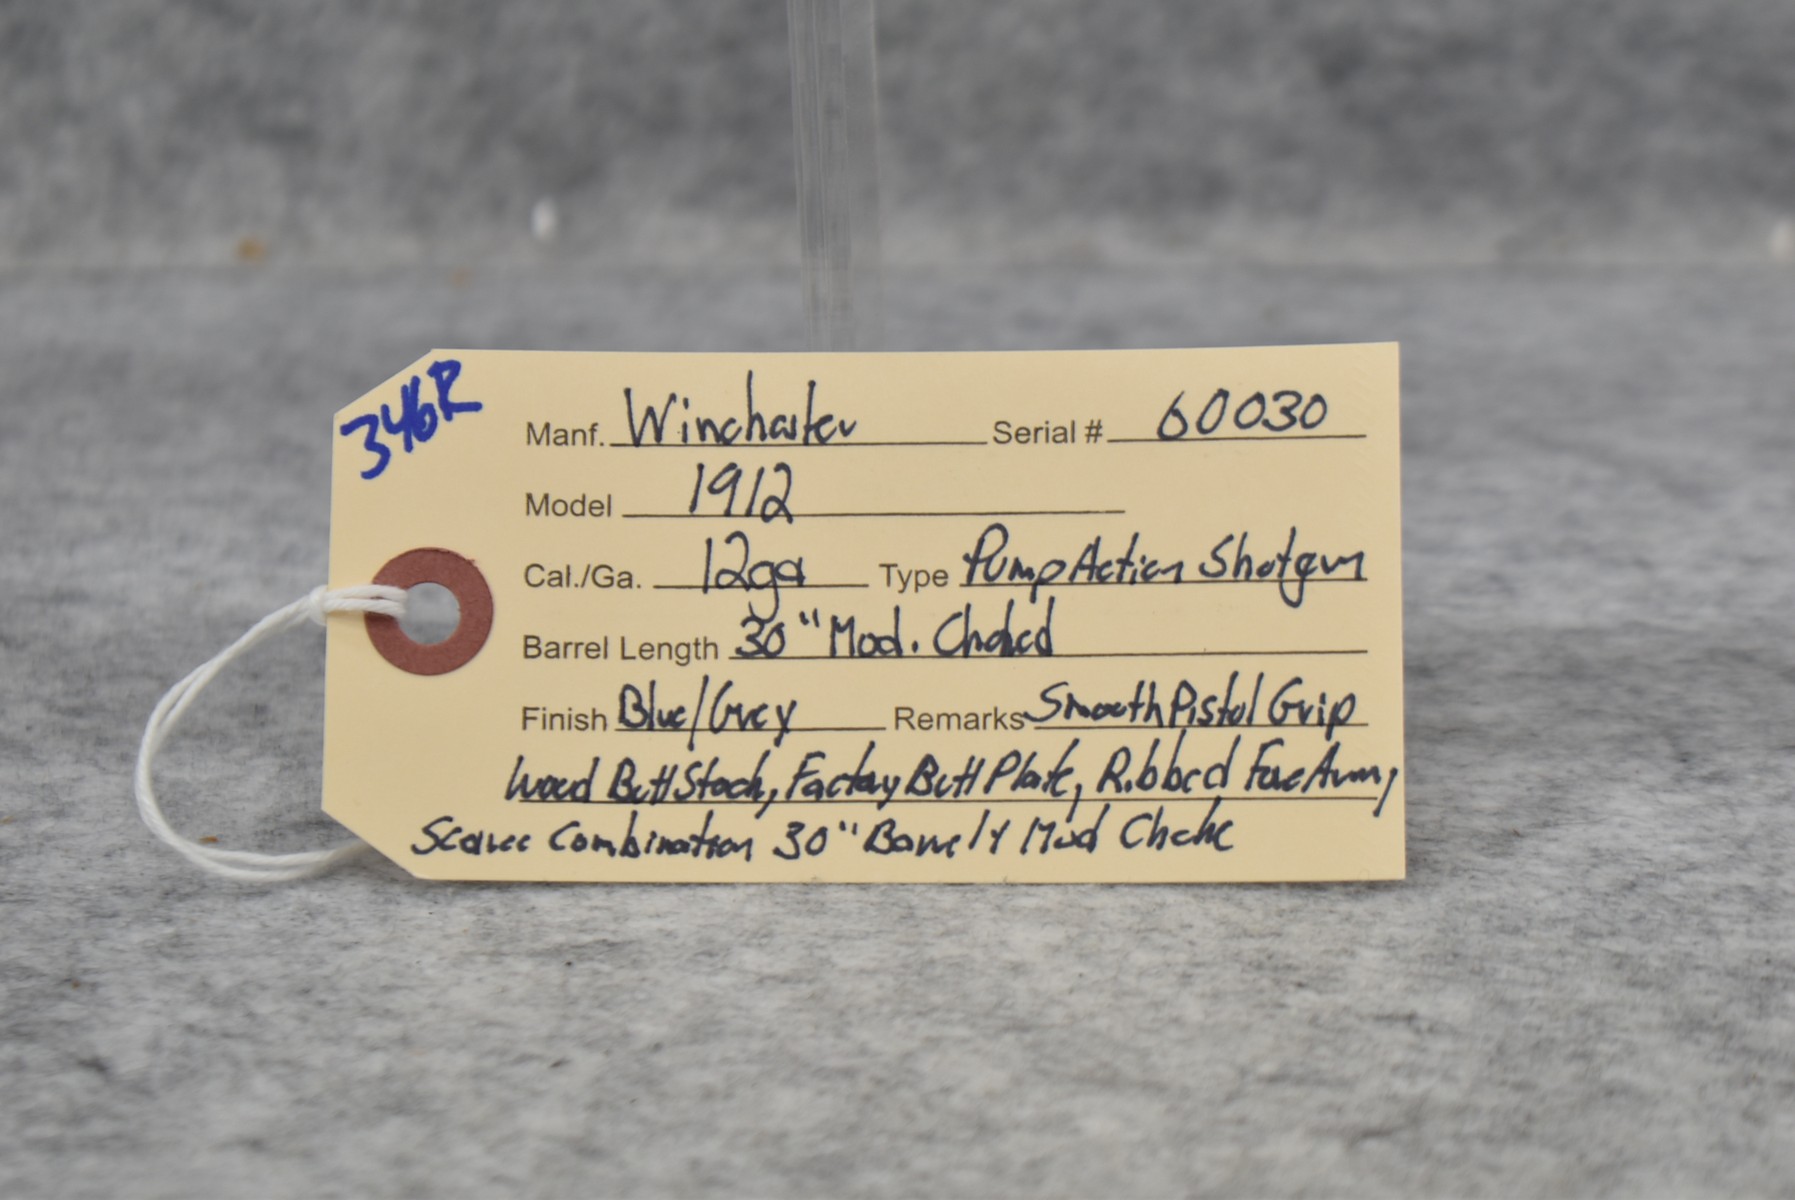 346R
Manf. Winchester Serial # 60030
Model 1912
Cal./Ga. 12ga Type Pump Action Shotgun
Barrel Length 30" Mod. Choked
Finish Blue/Grey Remarks Smooth Pistol Grip
Wood Butt Stock, Factory Butt Plate, Ribbed Fore Arm,
Scarce Combination 30" Barrel Mod Choke